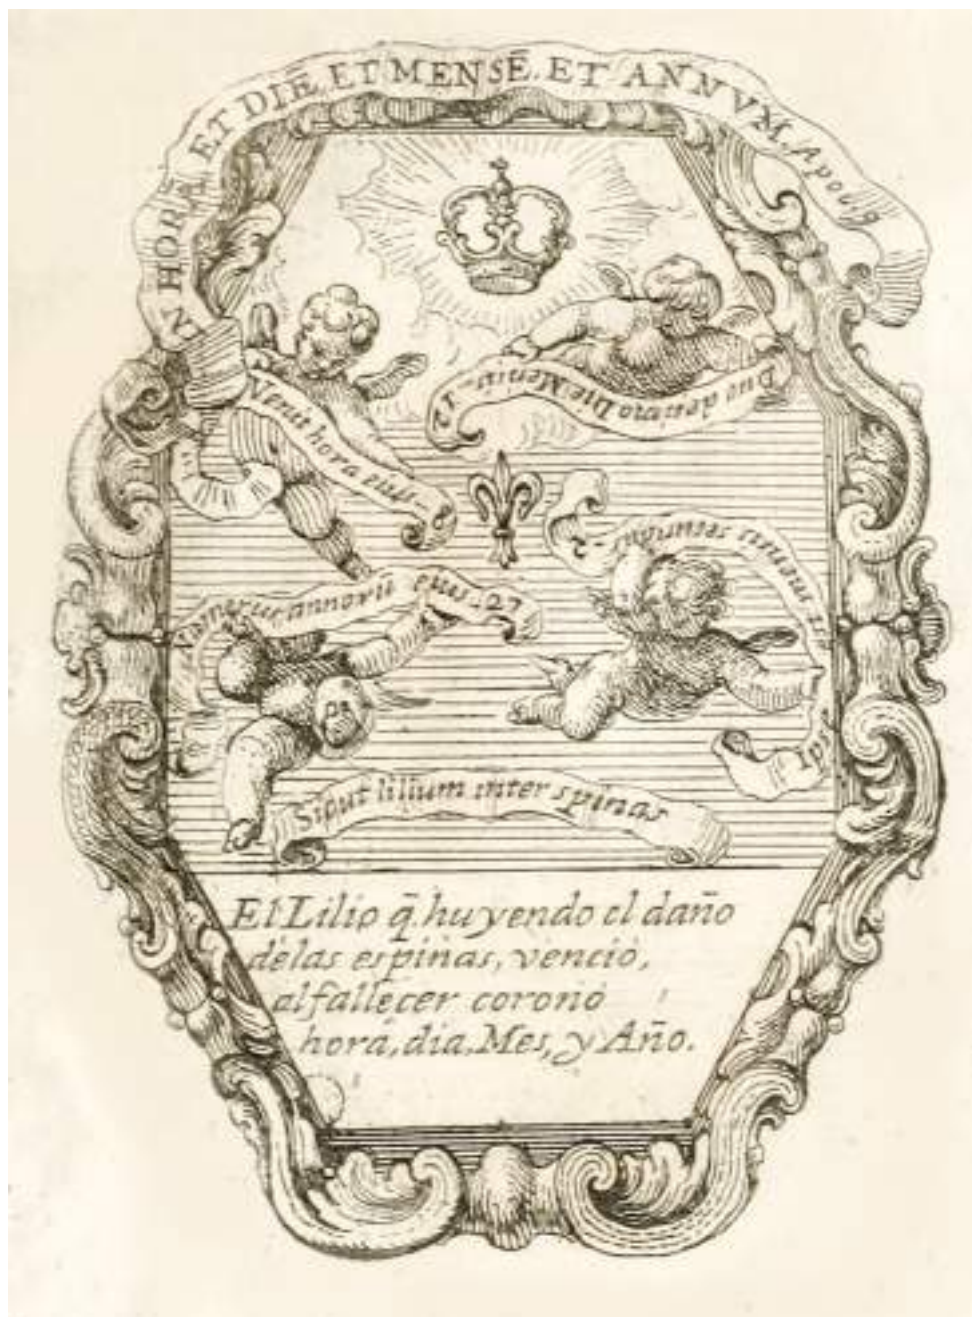 IN HORĀ, ET DIĒ, ET MENSĒ, ET ANNVM. Apo. 9
Venit hora eius
Duo decimo Die Mensis 12
est mensis secundus 2
numerus annorū eius 27
Sicut lilium inter spinas
El Lilio q̄. huyendo el daño
de las espinas, venció,
al fallecer coronó
hora, dia, Mes, y Año.